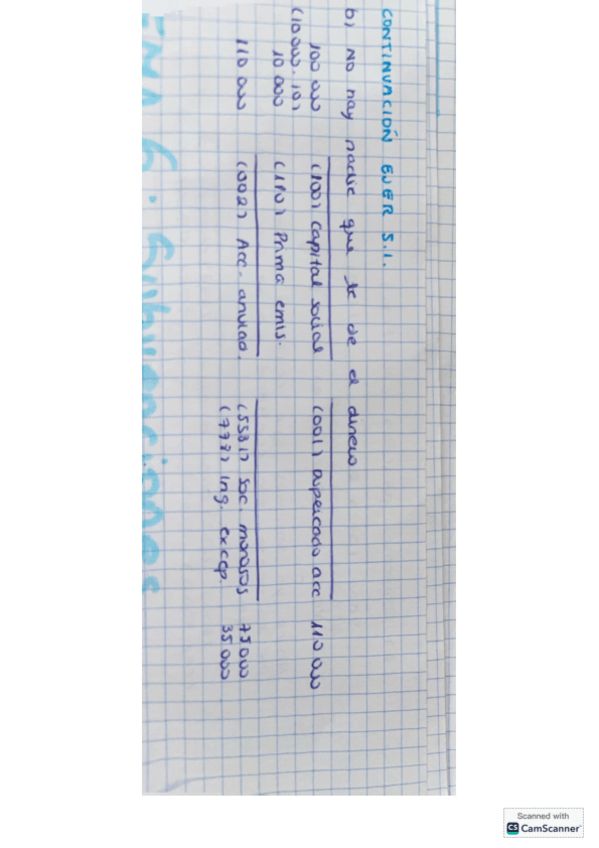 CONTINUACIÓN EVER S.L.
b) No hay nadie que le de el dinero
100 000 (100) Capital social (001) duplicado acc 110 000
(10 000 . 10)
10 000 (110) Prima emis.
110 000 (002) Acc. anulad. (5581) Soc. morosos 75 000
(778) Ing. excep. 35 000
TEMA 6. Subvenciones
Scanned with
CS CamScanner